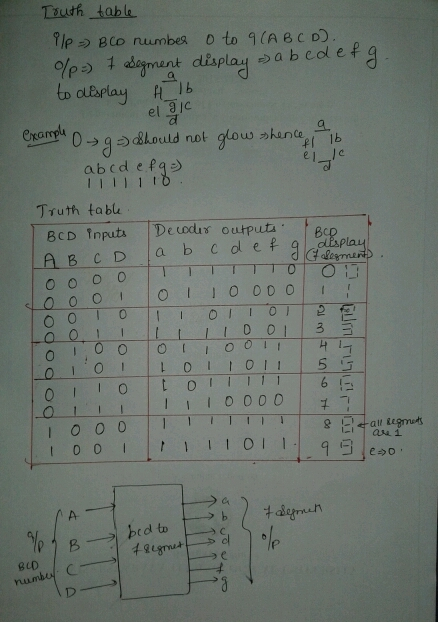 Truth table
i/p => BCD number 0 to 9 (A B C D).
o/p => 7 segment display => a b c d e f g.
to display
a
f b
g
e c
d
Example 0 → g => should not glow => hence
a
f b
e c
d
a b c d e f g =>
1 1 1 1 1 1 0
Truth table.
BCD inputs Decoder outputs. BCD display (7 segment).
A B C D a b c d e f g
0 0 0 0 1 1 1 1 1 1 0 0
0 0 0 1 0 1 1 0 0 0 0 1
0 0 1 0 1 1 0 1 1 0 1 2
0 0 1 1 1 1 1 1 0 0 1 3
0 1 0 0 0 1 1 0 0 1 1 4
0 1 0 1 1 0 1 1 0 1 1 5
0 1 1 0 1 0 1 1 1 1 1 6
0 1 1 1 1 1 1 0 0 0 0 7
1 0 0 0 1 1 1 1 1 1 1 8 ← all segments are 1
1 0 0 1 1 1 1 1 0 1 1 9 e => 0.
i/p
BCD
number
A
B
C
D
bcd to
7 segment
a
b
c
d
e
f
g
7 segment
o/p